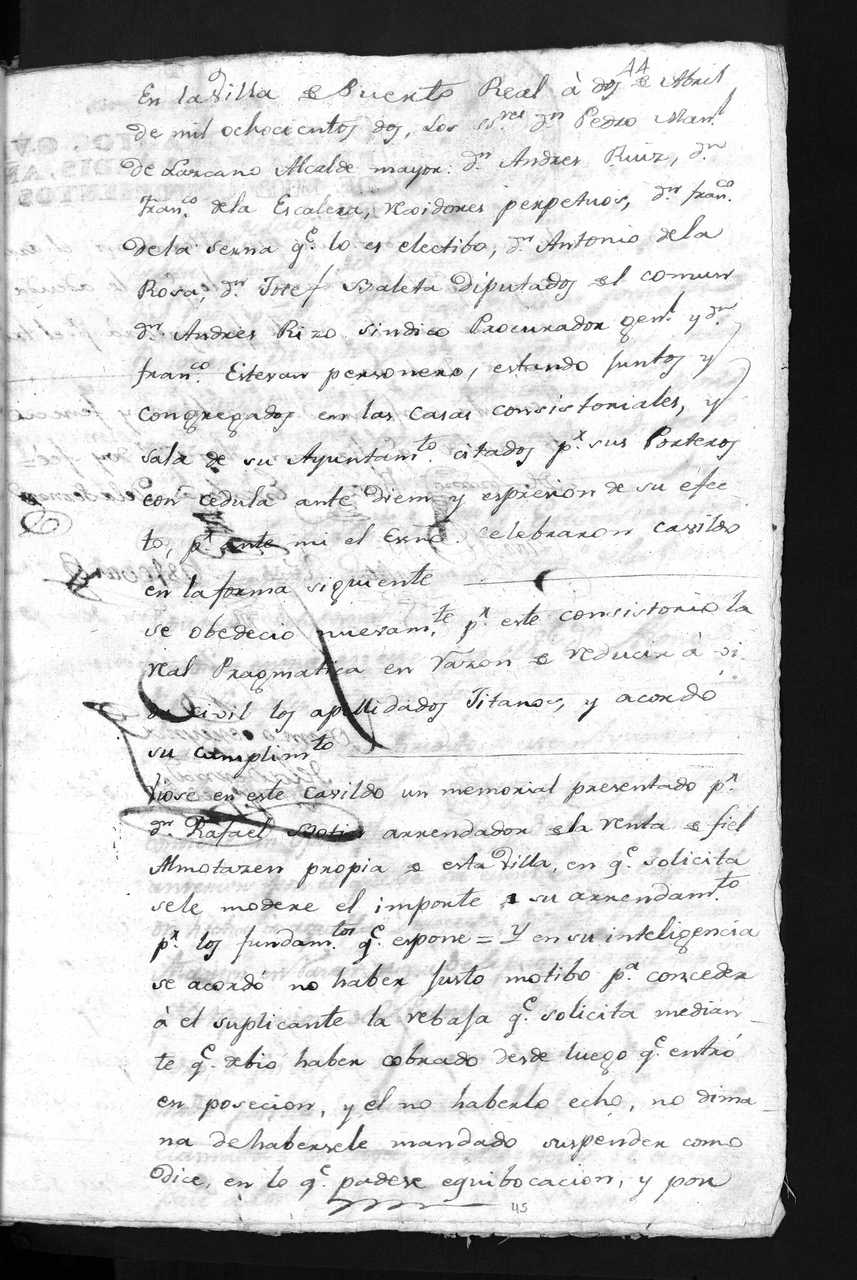 44
En la Villa de Puerto Real à dos de Abril
de mil ochocientos dos, los S.res D.n Pedro Man.l
de Lazcano Alcalde mayor: D.n Andres Ruiz, D.n
Fran.co de la Escalera, Rexidores perpetuos, D.n Fran.co
de la Serna q.e lo es electibo, D.n Antonio de la
Rosa, D.n Josef Baleta Diputados del comun
D.n Andres Rizo Sindico Procurador gen.l y D.n
Fran.co Estevan personero, estando Juntos y
congregados en las casas consistoriales, y
sala de su Ayuntam.to citados p.r sus Porteros
con cedula ante diem y espresion de su efec
to, p.r ante mi el Esno. celebraron cavildo
en la forma siguiente
se obedecio nuevam.te p.r este consistorio la
Real Pragmatica en razon de reducir à vi
da civil los apellidados Jitanos, y acordó
su cumplim.to
Viose en este Cavildo un memorial presentado p.r
D.n Rafael arrendador de la renta de fiel
Almotazen propia de esta Villa, en q.e solicita
sele modere el importe de su arrendam.to
p.r los fundam.tos q.e espone = Y en su inteligencia
se acordó no haber Justo motibo p.a conceder
à el suplicante la rebaja q.e solicita median
te q.e debió haber cobrado desde luego q.e entró
en posecion, y el no haberlo echo, no dima
na de habersele mandado suspender como
dice, en lo q.e padese equibocacion, y por
45